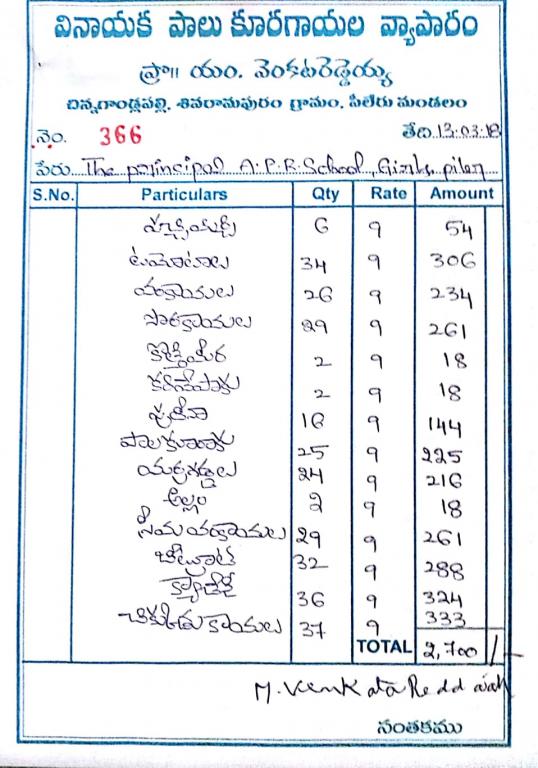 వినాయక పాలు కూరగాయల వ్యాపారం
ప్రో॥ యం. వెంకటరెడ్డెయ్య
చిన్నగాండ్లపల్లి, శివరామపురం గ్రామం, పీలేరు మండలం
నెం. 366 తేది 13-03-18
పేరు The principal A.P.R. School, Girls, piler
S.No. Particulars Qty Rate Amount
పచ్చిమిర్చి 6 9 54
టమోటాలు 34 9 306
వంకాయలు 26 9 234
సొరకాయలు 29 9 261
కొత్తిమీర 2 9 18
కరివేపాకు 2 9 18
పుదీనా 16 9 144
పాలకూరాకు 25 9 225
యర్రగడ్డలు 24 9 216
అల్లం 2 9 18
సీమ వంకాయలు 29 9 261
బీట్రూట్ 32 9 288
క్యారెట్ 36 9 324
చిక్కుడు కాయలు 37 9 333
TOTAL 2,700/-
M. Venkata Reddaiah
సంతకము